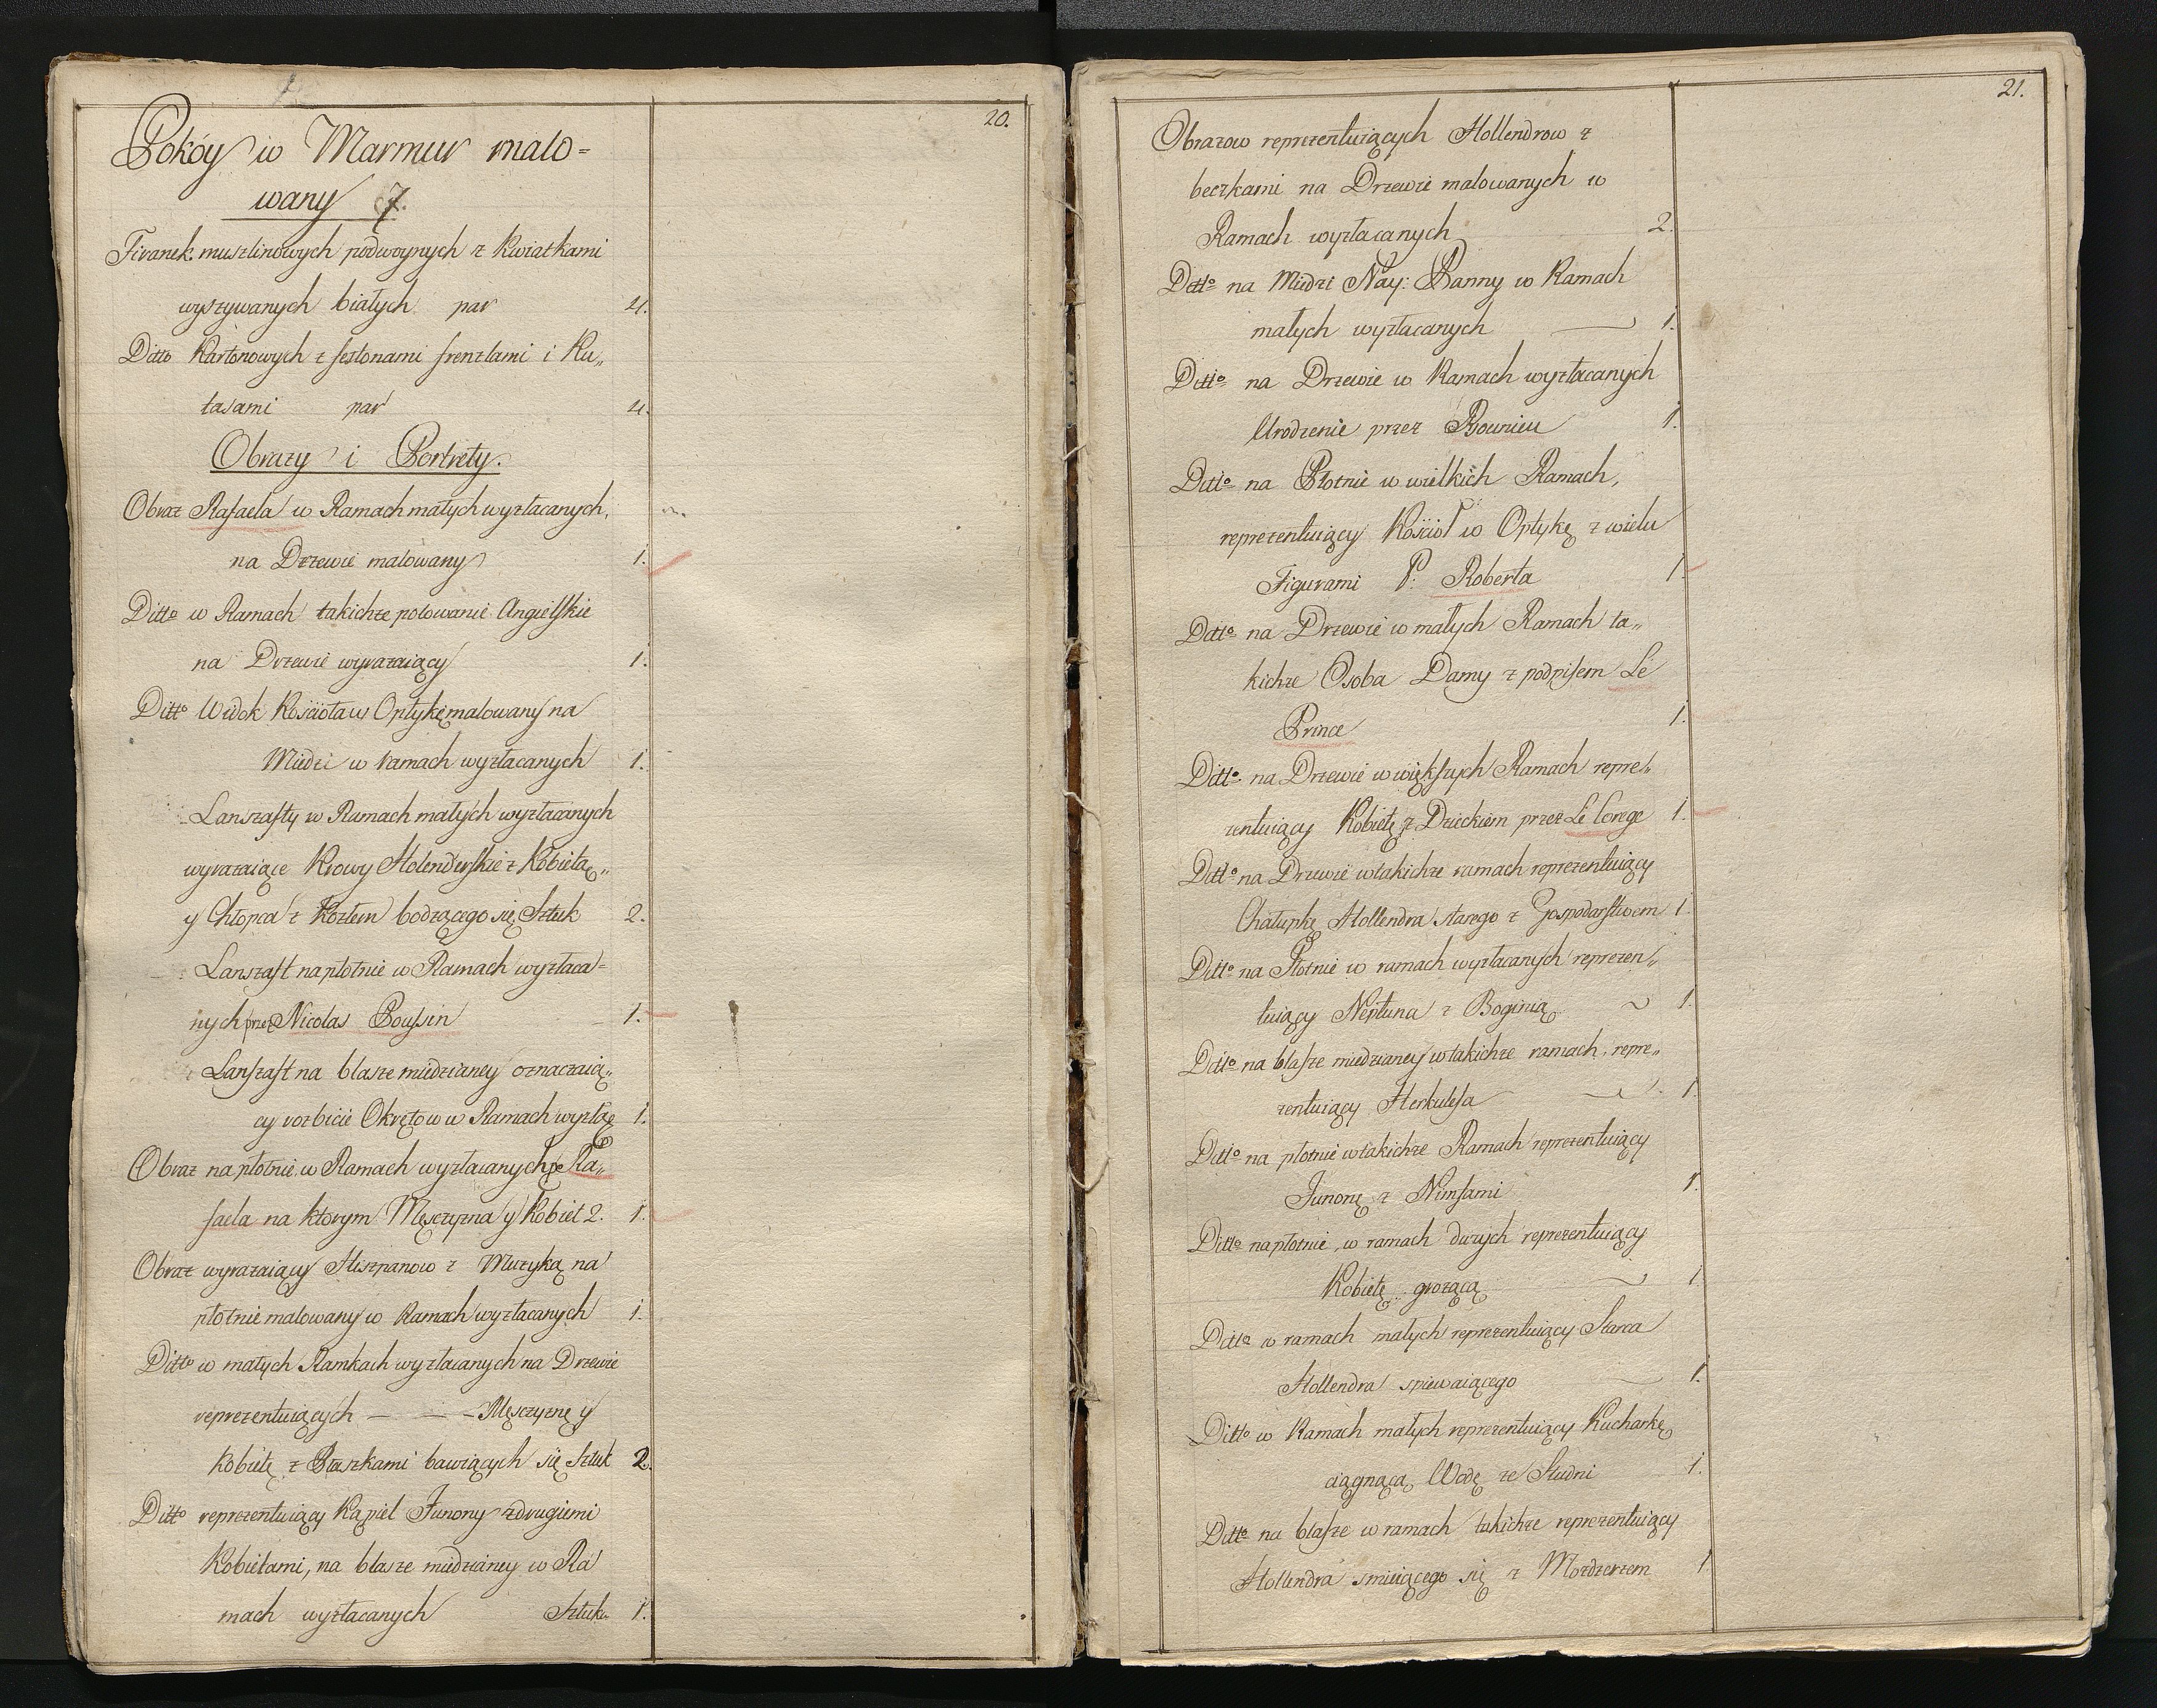 20.
Pokóy w Marmur malo=
wany 7.
Firanek muszlinowych podwoynych z Kwiatkami
wyszywanych białych par 4.
Ditto Kartonowych z festonami frenzlami i Ku„
tasami par 4.
Obrazy i Portrety.
Obraz Rafaela w Ramach małych wyzłacanych,
na Drzewie malowany 1.
Ditto w Ramach takichże polowanie Angielskie
na Drzewie wyrażaiący 1.
Ditto Widok Kościoła w Optykę malowany na
Miedzi w ramach wyzłacanych 1.
Lanszafty w Ramach małych wyzłacanych
wyrażaiące Krowy Holenderskie z Kobietą„
y Chłopca z Kozłem bodzącego się Sztuk 2.
Lanszaft na płotnie w Ramach wyzłaca=
nych przez Nicolas Poussin 1.
Lanszaft na blasze miedzianey oznaczaią„
cy rozbicie Okrętow w Ramach wyzłą 1.
Obraz na płotnie w Ramach wyzłacanych pe Ra„
faela na ktorym Męsczyzna y Kobiet 2. 1.
Obraz wyrażaiący Hiszpanow z Muzyką na
płotnie malowany w Ramach wyzłacanych 1.
Ditto w małych Ramkach wyzłacanych na Drzewie
reprezentuiących — — — Męsczyznę y
Kobietę z Ptaszkami bawiących się Sztuk 2.
Ditto reprezentuiący Kąpiel Junony z drugiemi
Kobietami, na blasze miedzianey w Ra
mach wyzłacanych Sztuk 1.
21.
Obrazow reprezentuiących Hollendrow z
beczkami na Drzewie malowanych w
Ramach wyzłacanych 2.
Ditto na Miedzi Nay: Panny w Ramach
małych wyzłacanych — 1.
Ditto na Drzewie w Ramach wyzłacanych
Urodzenie przez Bounieu 1.
Ditto na Płotnie w wielkich Ramach,
reprezentuiący Kościoł w Optykę z wielu
Figurami P. Roberta 1.
Ditto na Drzewie w małych Ramach ta„
kichże Osoba Damy z podpisem Le
Prince 1.
Ditto na Drzewie w większych Ramach repre„
zentuiący Kobietę z Dzieckiem przez Le Corege 1.
Ditto na Drzewie w takichże ramach reprezentuiący
Chałupkę Hollendra starego z Gospodarstwem 1.
Ditto na Płotnie w ramach wyzłacanych reprezen„
tuiący Neptuna z Boginią 1.
Ditto na blasze miedzianey w takichże ramach, repre„
zentuiący Herkulesa 1.
Ditto na płotnie w takichże Ramach reprezentuiący
Junonę z Nimfami 1.
Ditto na płotnie, w ramach dużych reprezentuiący
Kobietę grożącą 1.
Ditto w ramach małych reprezentuiący Starca
Hollendra spiewaiącego 1.
Ditto w Ramach małych reprezentuiący Kucharkę
ciągnącą Wodę ze Studni 1.
Ditto na blasze w ramach takichże reprezentuiący
Hollendra smieiącego się z Mozdzerzem 1